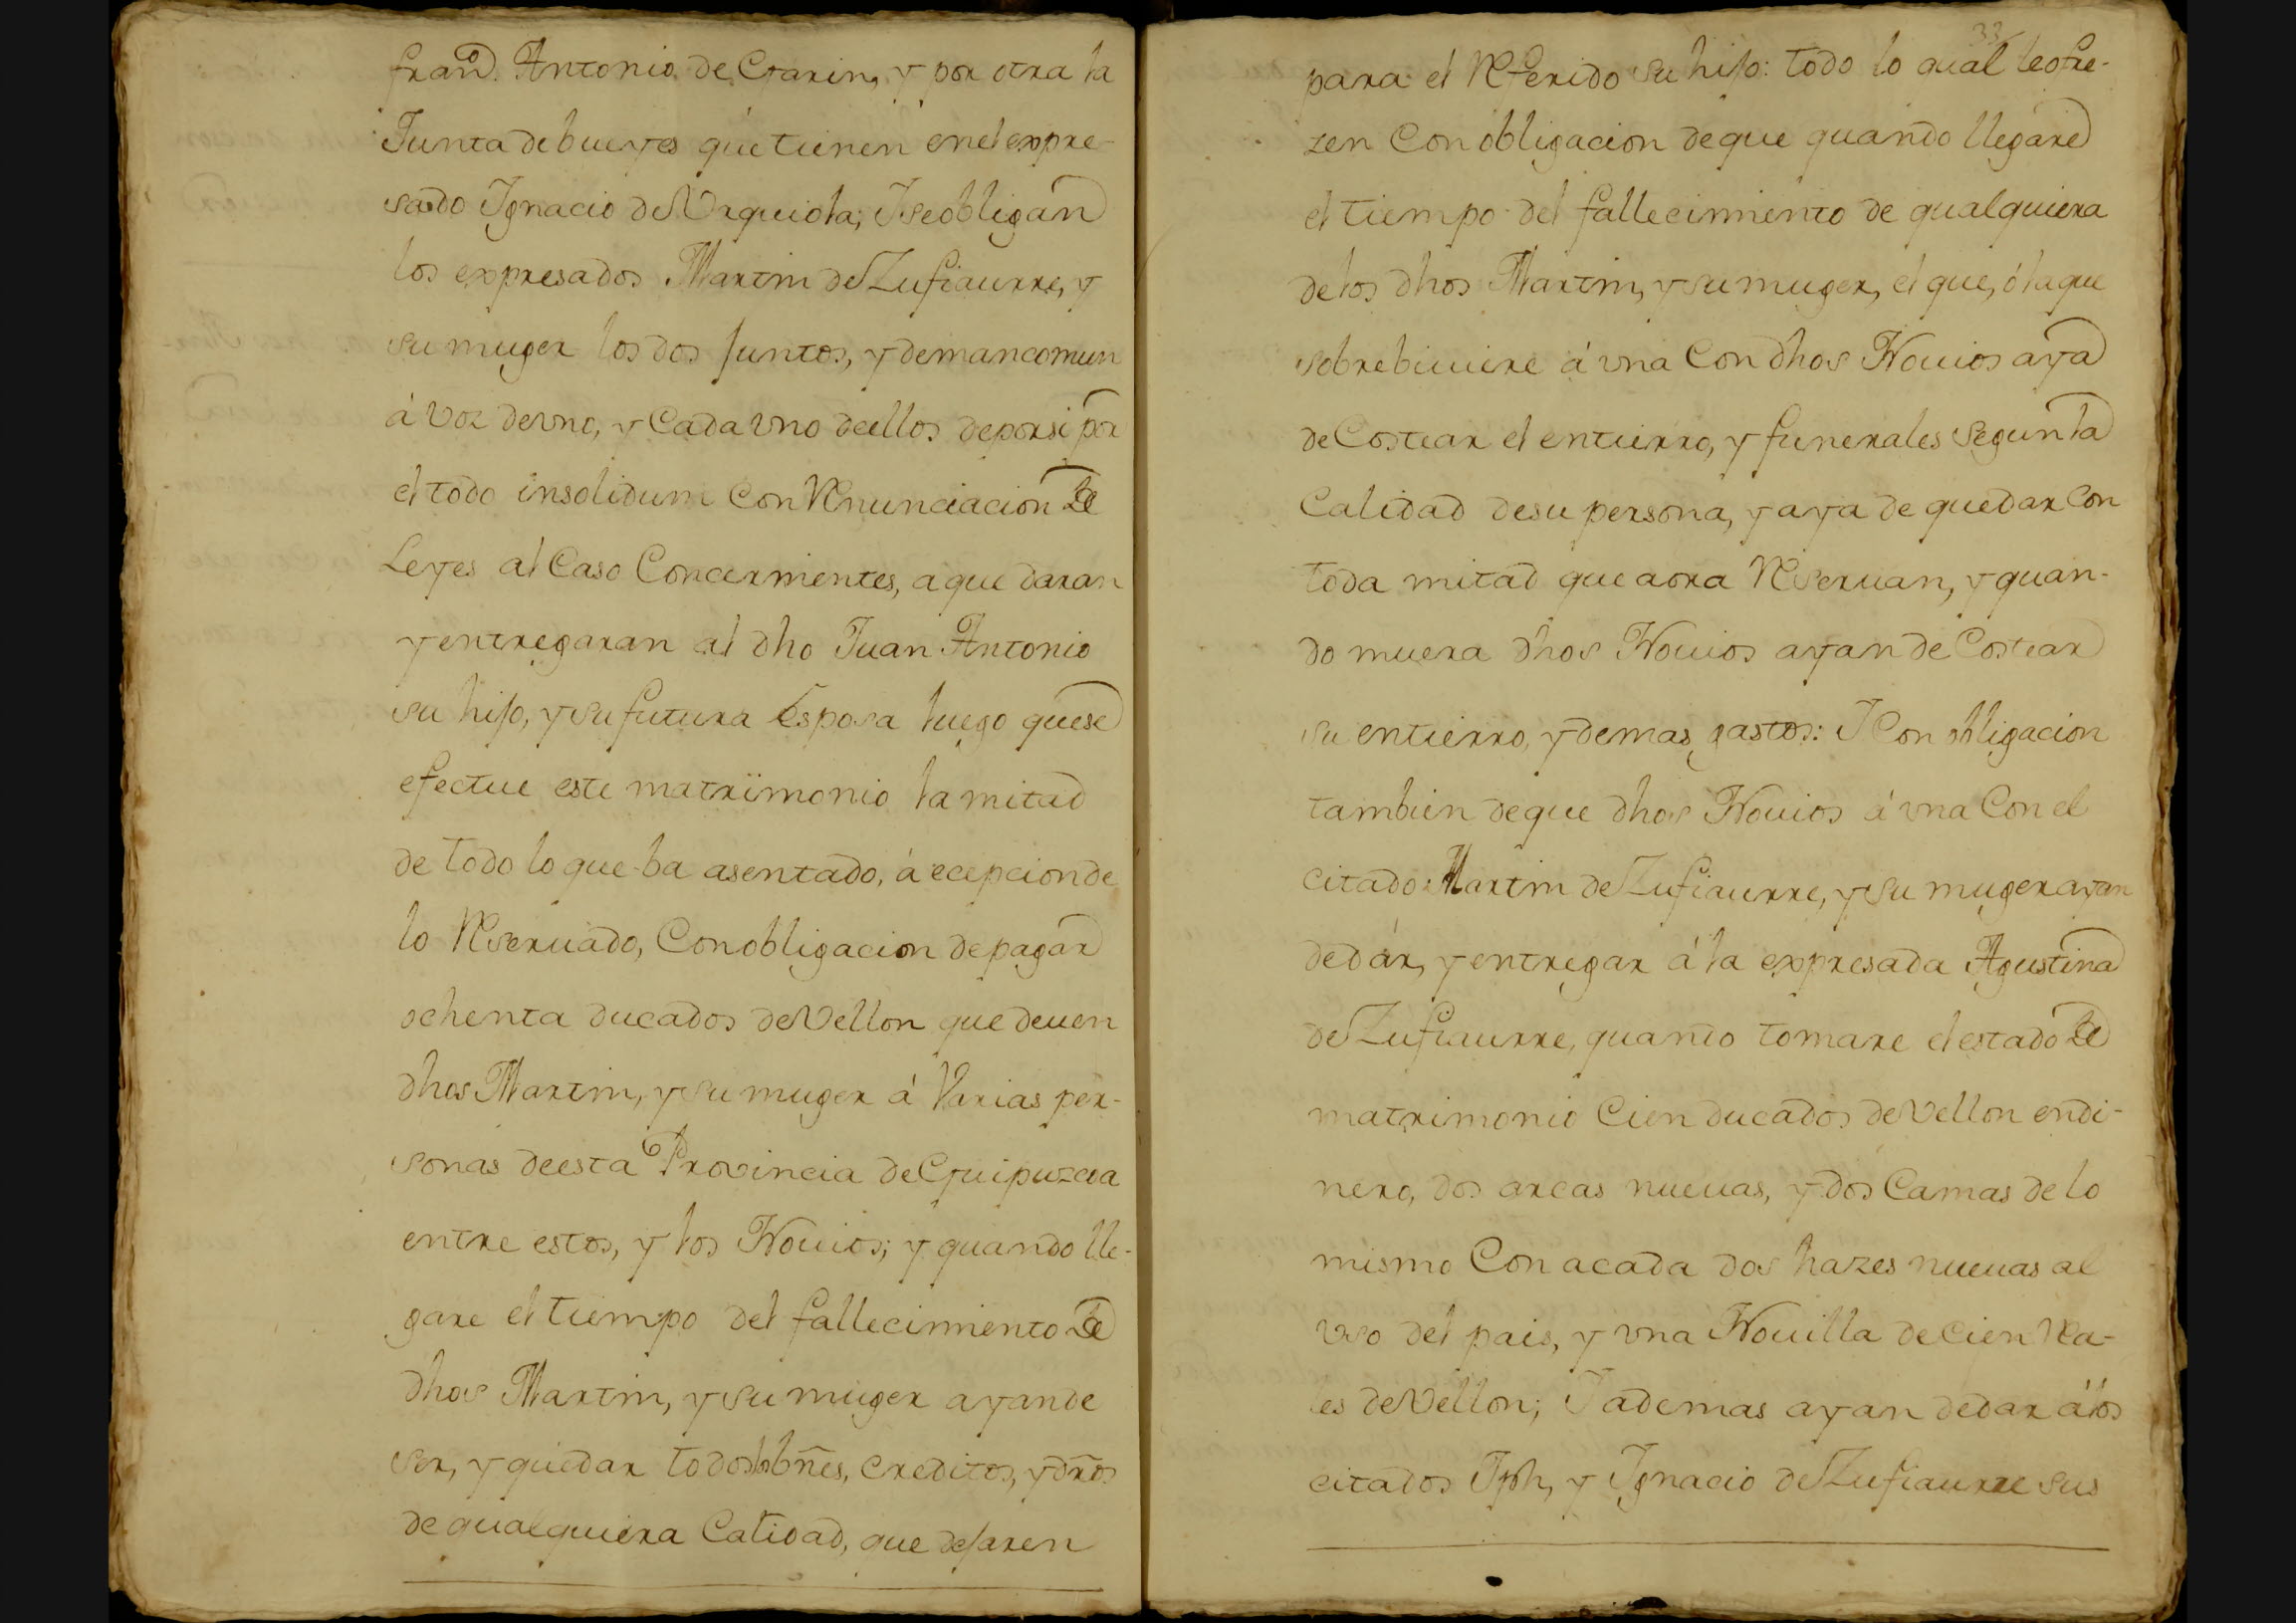 fran.co Antonio de Garin, y por otra la
Junta de bueyes que tienen en el expre-
sado Ignacio de Vrquiola; Y se obligan
los expresados Martin de Zufiaurre, y
su muger los dos juntos, y demancomun
á voz de vno, y Cada vno de ellos de por si por
el todo insolidum Con Renunciacion de
Leyes al Caso Concernientes, a que daran
y entregaran al dho Juan Antonio
su hijo, y su futura Esposa luego que se
efectue este matrimonio la mitad
de todo lo que ba asentado, á ecepcion de
lo Reseruado, Con obligacion de pagar
ochenta ducados de Vellon que deuen
dhos Martin, y su muger á Varias per-
sonas de esta Provincia de Guipuzcoa
entre estos, y los Nouios; y quando lle-
gare el tiempo del fallecimiento de
dhos Martin, y su muger ayan de
ser, y quedar todos los bñes, creditos, y dros
de qualquiera Calidad, que dejaren
33
para el Referido su hijo: todo lo qual le ofre-
zen Con obligacion de que quando llegare
el tiempo del fallecimiento de qualquiera
de los dhos Martin, y su muger, el que, ó la que
sobrebiuiere á vna Con dhos Nouios aya
de Costear el entierro, y funerales segun la
Calidad de su persona, y aya de quedar Con
toda mitad que aora Reseruan, y quan-
do muera dhos Nouios ayan de Costear
su entierro, y demas gastos: Y Con obligacion
tambien de que dhos Nouios á vna Con el
citado Martin de Zufiaurre, y su muger ayan
de dár, y entregar á la expresada Agustina
de Zufiaurre, quando tomare el estado de
matrimonio Cien ducados de Vellon en di-
nero, dos arcas nueuas, y dos Camas de lo
mismo Con acada dos hazes nueuas al
vso del pais, y vna Nouilla de Cien Rea-
es de Vellon; Y ademas ayan de dar á los
citados Jph, y Ignacio de Zufiaurre sus